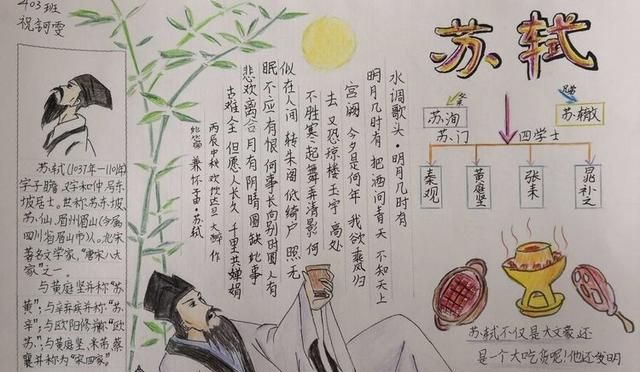 403班
祝訶雯
苏轼
苏洵
苏辙
苏门 四学士
秦观
黄庭坚
张耒
晁补之
水调歌头·明月几时有
明月几时有 把酒问青天 不知天上
宫阙 今夕是何年 我欲乘风归
去 又恐琼楼玉宇 高处
不胜寒 起舞弄清影 何
似在人间 转朱阁 低绮户 照无
眠 不应有恨 何事长向别时圆 人有
悲欢离合 月有阴晴圆缺 此事
古难全 但愿人长久 千里共婵娟
丙辰中秋 欢饮达旦 大醉 作
此篇 兼怀子由·苏轼
苏轼(1037年—1101年)
字子瞻、又字和仲,号东
坡居士。世称苏东坡、
苏仙,眉州眉山(今属
四川省眉山市)人。北宋
著名文学家,"唐宋八大
家"之一。
与黄庭坚并称"苏
黄";与辛弃疾并称"苏
辛";与欧阳修并称"欧
苏";与黄庭坚、米芾、蔡
襄并称为"宋四家"。
苏轼不仅是大文豪,还
是一个大吃货呢!他还发明